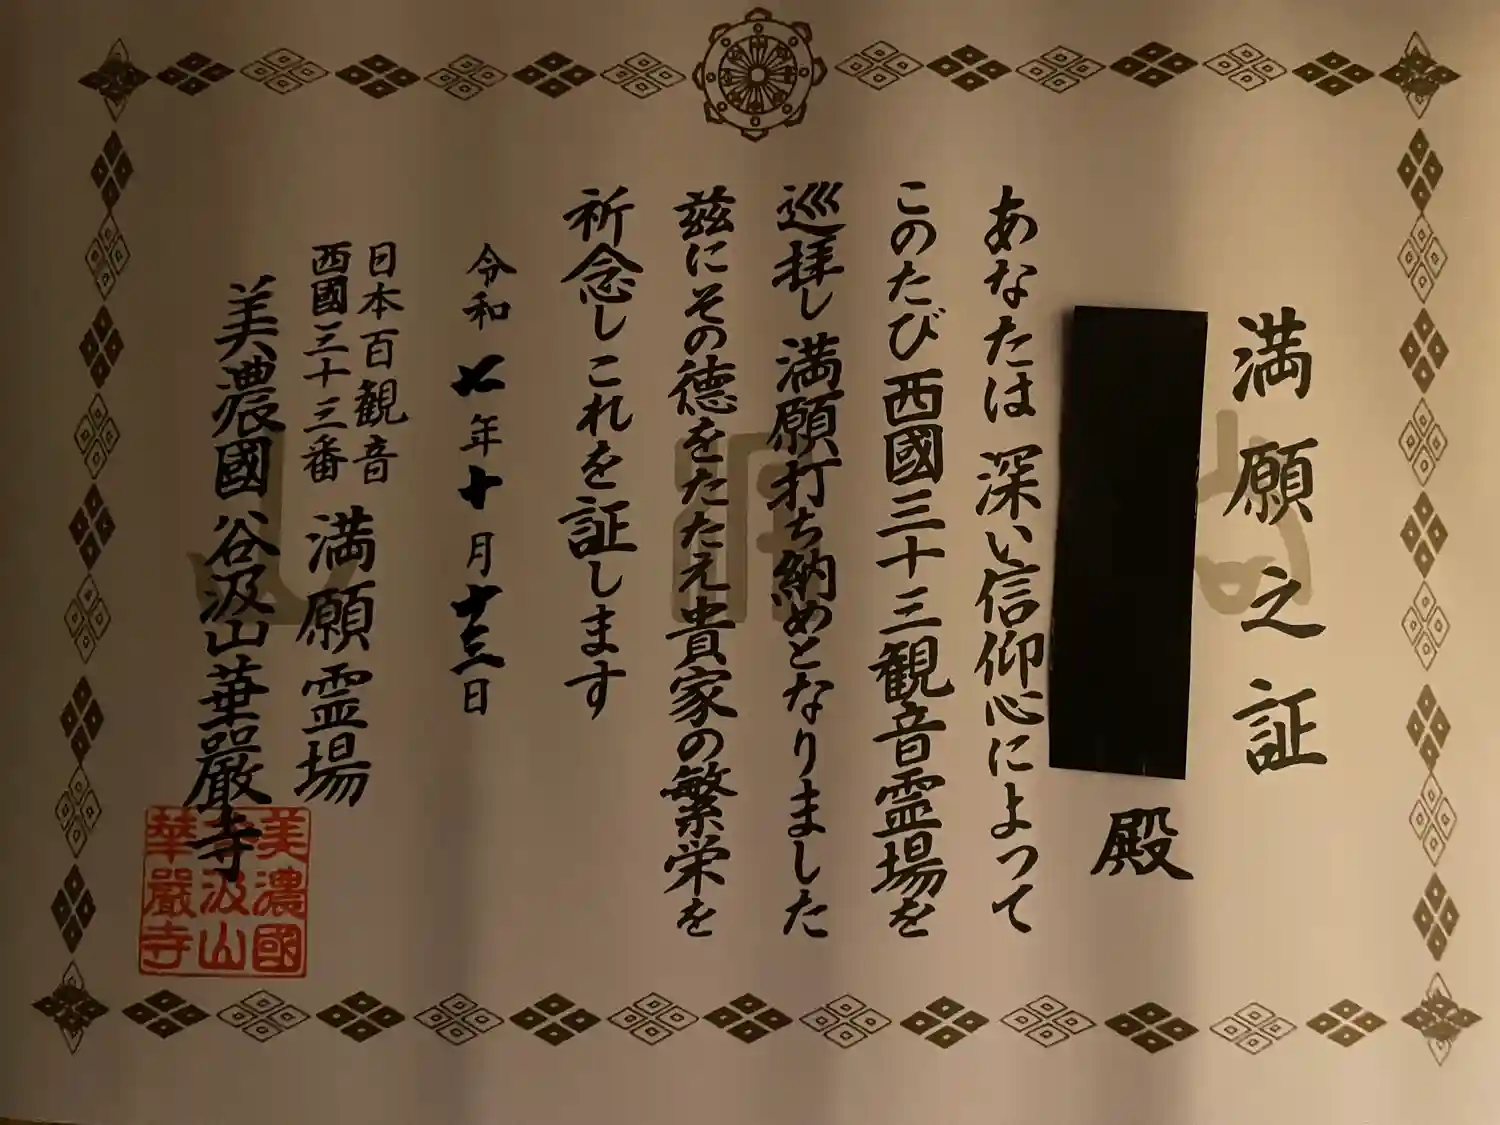 満願之証
殿
あなたは深い信仰心によって
このたび西國三十三観音霊場を
巡拝し満願打ち納めとなりました
茲にその徳をたたえ貴家の繁栄を
祈念しこれを証します
令和七年十月十三日
日本百観音
西國三十三番
満願霊場
美濃國谷汲山華嚴寺
美濃國
谷汲山
華嚴寺